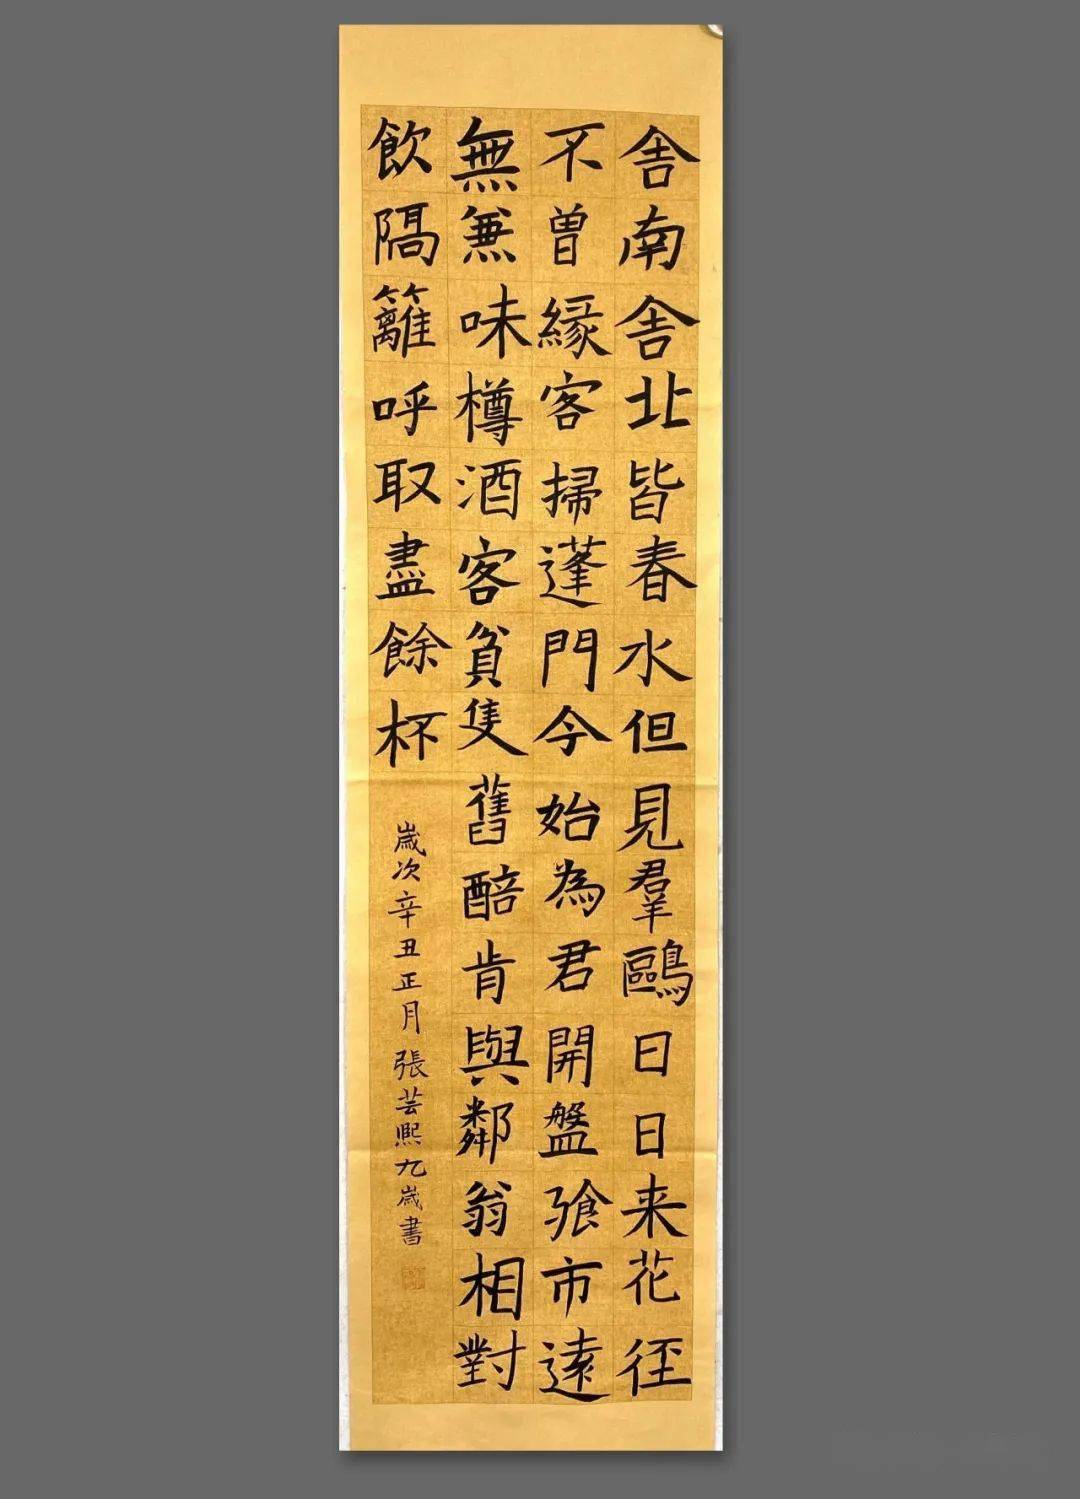 舍南舍北皆春水但見羣鷗日日来花径
不曾緣客掃蓬門今始為君開盤飱市遠
無兼味樽酒客貧隻舊醅肯與鄰翁相對
飲隔籬呼取盡餘杯
歲次辛丑正月張芸熙九歲書